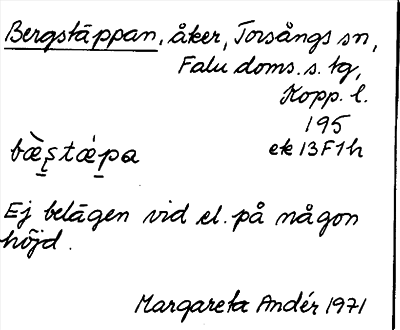 Bergstäppan, åker, Torsångs sn,
Falu doms. s. tg,
Kopp. l.
195
bæ̀ʂtǽpa ek 13F1h
Ej belägen vid el. på någon
höjd.
Margareta Andér 1971